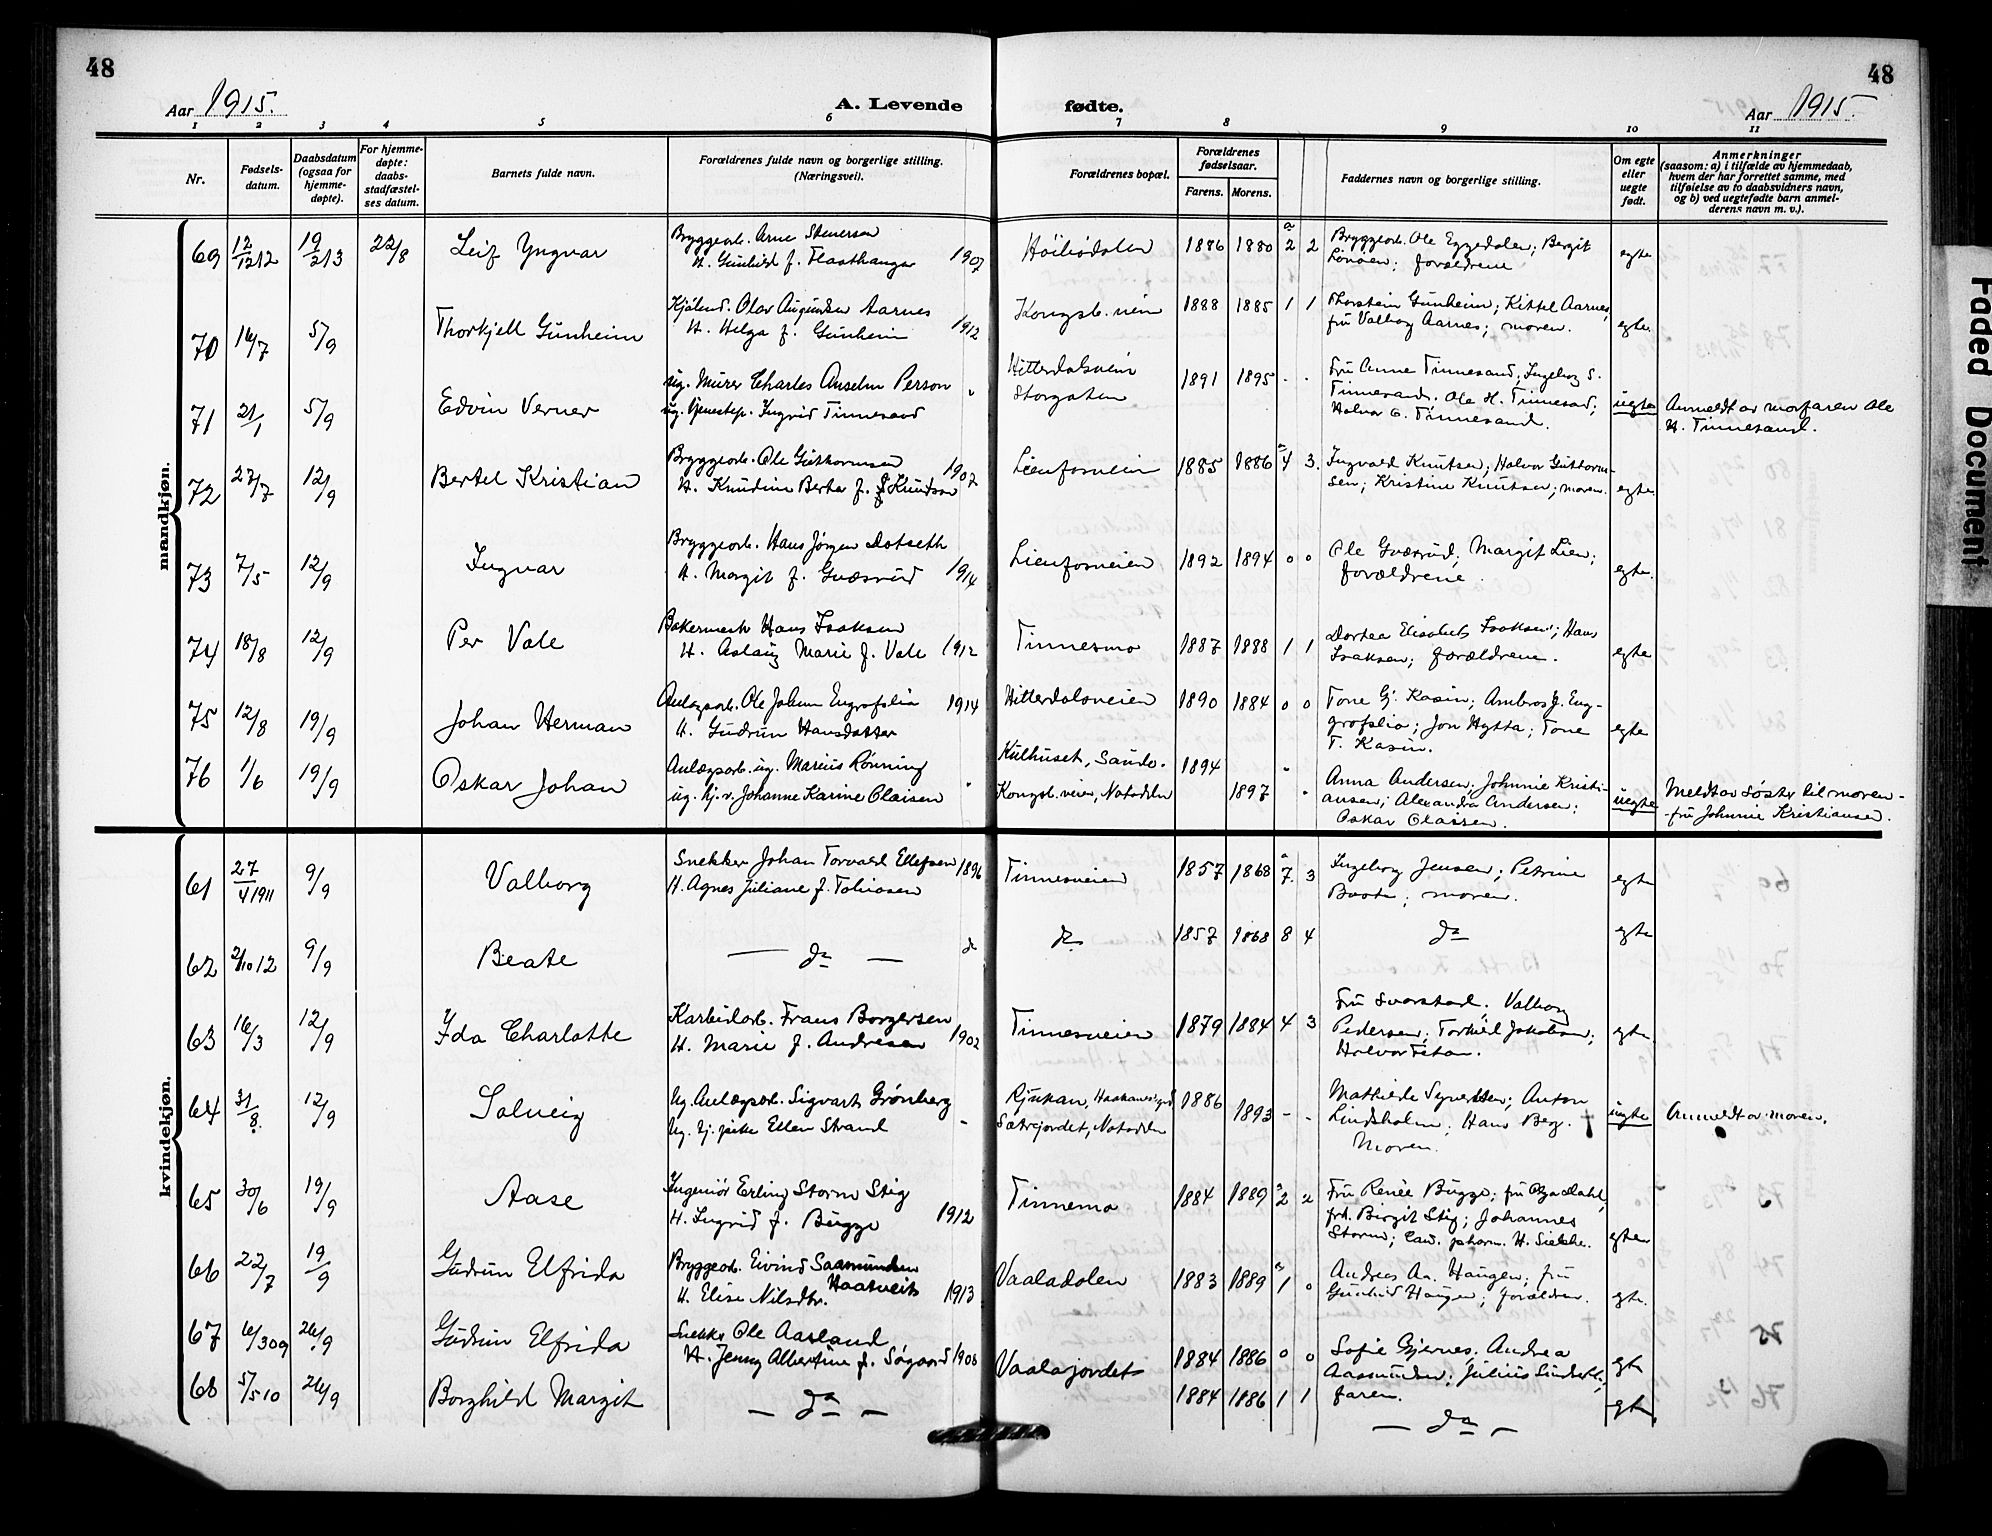 48
48
Aar 1915.
A. Levende
fødte.
Aar 1915.
1 2 3 4 5 6 7 8 9 10 11
Nr.
Fødsels-
datum.
Daabsdatum
(ogsaa for
hjemme-
døpte).
For hjemme-
døpte:
daabs-
stadfæstel-
ses datum.
Barnets fulde navn.
Forældrenes fulde navn og borgerlige stilling.
(Næringsvei).
Forældrenes bopæl.
Forældrenes
fødselsaar.
Farens. Morens.
Faddernes navn og borgerlige stilling.
Om egte
eller
uegte
født.
Anmerkninger
(saasom: a) i tilfælde av hjemmedaab,
hvem der har forrettet samme, med
tilføielse av to daabsvidners navn,
og b) ved uegtefødte barn anmel-
derens navn m. v.).
mandkjøn.
69 12/12 12 19/2 13 22/8 Leif Yngvar
Bryggearb. Arne Stenersen
H. Gunhild f. Flaathanger 1907
Høibødalen 1886 1880 2 2
Bryggearb. Ole Eggedalen; Bergit
Lonøen; forældrene egte
70 16/7 5/9 Thorkjell Gunheim
Olav Augundsen Aarnes
H. Helga f. Gunheim 1912
Kongsb.veien 1888 1885 1 1
Thorstein Gunheim; Kittel Aarnes,
fru Valborg Aarnes; moren. egte.
71 21/1 5/9 Edvin Verner
ug. Murer Charles Anselm Person
ug. tjenestep. Ingrid Tinnesand
Hitterdalsveien
Storgaten
1891 1895 - -
Fru Anne Tinnesand, Ingeborg S.
Tinnesand. Ole H. Tinnesand;
Halvor O. Tinnesand.
uegte Anmeldt av morfaren Ole
H. Tinnesand.
72 27/7 12/9 Bertel Kristian
Bryggearb. Ole Guttormsen
H. Knudine Berta f. Knudsen 1907
Lienfosveien 1885 1886 4 3.
Ingvald Knutsen; Halvor Guttorm-
sen; Kristine Knutsen; moren. egte.
73 7/5 12/9 Ingvar
Bryggearb. Hans Jørgen Dotseth
H. Margit f. Gvæsrud 1914
Lienfosveien 1892 1894 0 0
Ole Gvæsrud; Margit Lien;
forældrene. egte.
74 18/8 12/9 Per Vale
Bakermester Hans Isaksen
H. Aslaug Marie f. Vale 1912
Tinnesmo 1887 1888 1 1
Dortea Elisabeth Isaksen; Hans
Isaksen; forældrene. egte
75 12/8 19/9 Johan Herman
Anlægsarb. Ole Johan Engrofslia 1914
H. Gudrun Hansdatter
Hitterdalsveien 1890 1884 0 0
Tone G. Kasin; Ambros J. Eng-
grofslia; Jon Hytta; Tone
T. Kasin. egte
76 1/6 19/9 Oskar Johan
Anlægsarb. ug. Marius Rønning
ug. tj. Johanne Karine Olaisen
Kulhuset, Saude.
Kongsb.veien, Notodden
1894 1897
Anna Andersen; Johnnie Kristi-
ansen; Alexandra Andersen;
Oskar Olaisen.
uegte Meldt av søster til moren -
- fru Johnnie Kristiansen.
kvindekjøn.
61 27/4 1911 9/9 Valborg
Snekker Johan Torvald Ellefsen 1896
H. Agnes Juliane f. Tobiasen
Tinnesveien 1857 1868 7. 3
Ingeborg Jensen; Petrine
; moren. egte
62 2/10 12 9/9 Beate
— do — do
do 1857 1868 8 4 do egte
63 16/3 12/9 Ida Charlotte
Karbidarb. Frans Borgersen
H. Marie f. Andresen 1902
Tinnesveien 1879 1884 4 3
Fru Svorstad; Valborg
Pedersen; Torkild Jakobsen;
Halvor Tetan. egte.
64 31/8. 12/9 Solveig
Ug. Anlægsarb. Sigvart Grønberg
Ug. tj. pike Ellen Strand -
Rjukan,
Sætrejordet, Notodden
1886 1893 - -
Mathilde Syvertsen; Anton
Lindholm; Hans Berg.
Moren.
† uegte Anmeldt av moren.
65 30/6 19/9 Aase
Ingeniør Erling Storm Stig
H. Ingrid f. Bugge 1912
Tinnemo 1884 1889 2 2
Fru Renée Bugge; fru Dahl,
frk. Birgit Stig; Johannes
Storm; cand. pharm. H. egte
66 22/7 19/9 Gudrun Elfrida
Bryggearb. Eivind Saamunden
Haatveit
H. Elise Nilsdtr. 1913
Vaaladalen 1883 1889 1 0
Andres Aa. Haugen; fru
Gunhild Haugen; forældrene. egte.
67 6/3 09 26/9 Gudrun Elfrida
Snekker Ole Aasland
H. Jenny Albertine f. Søgaard 1908
Vaalajordet 1884 1886 0 0
Sofie Gjernes; Andrea
Aasmundsen; Julius ;
faren. egte
68 5/5 10 26/9 Borghild Margit
— do —
1884 1886 1 1 — do — egte.
Faded Document